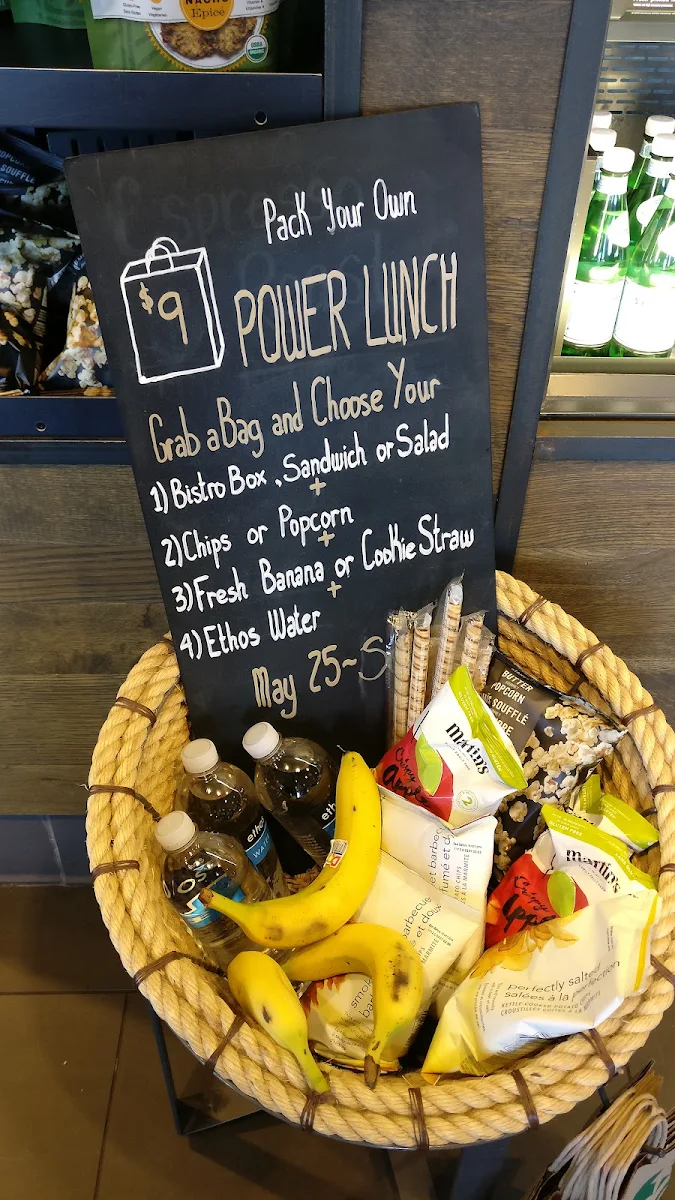 NACHO
Epicé
USDA
ORGANIC
POPCORN
SOUFFLÉ
Pack Your Own
$9
POWER LUNCH
Grab a Bag and Choose Your
1) Bistro Box, Sandwich or Salad
+
2) Chips or Popcorn
+
3) Fresh Banana or Cookie Straw
+
4) Ethos Water
May 25~S
BUTTER
POPCORN
SOUFFLÉ
Martin's
Crispy
Apple
WATER
perfectly salted
salées à la
KETTLE COOKED POTATO
CROUSTILLES CUITES À LA
Martin's
Crispy
barbecue
et doux